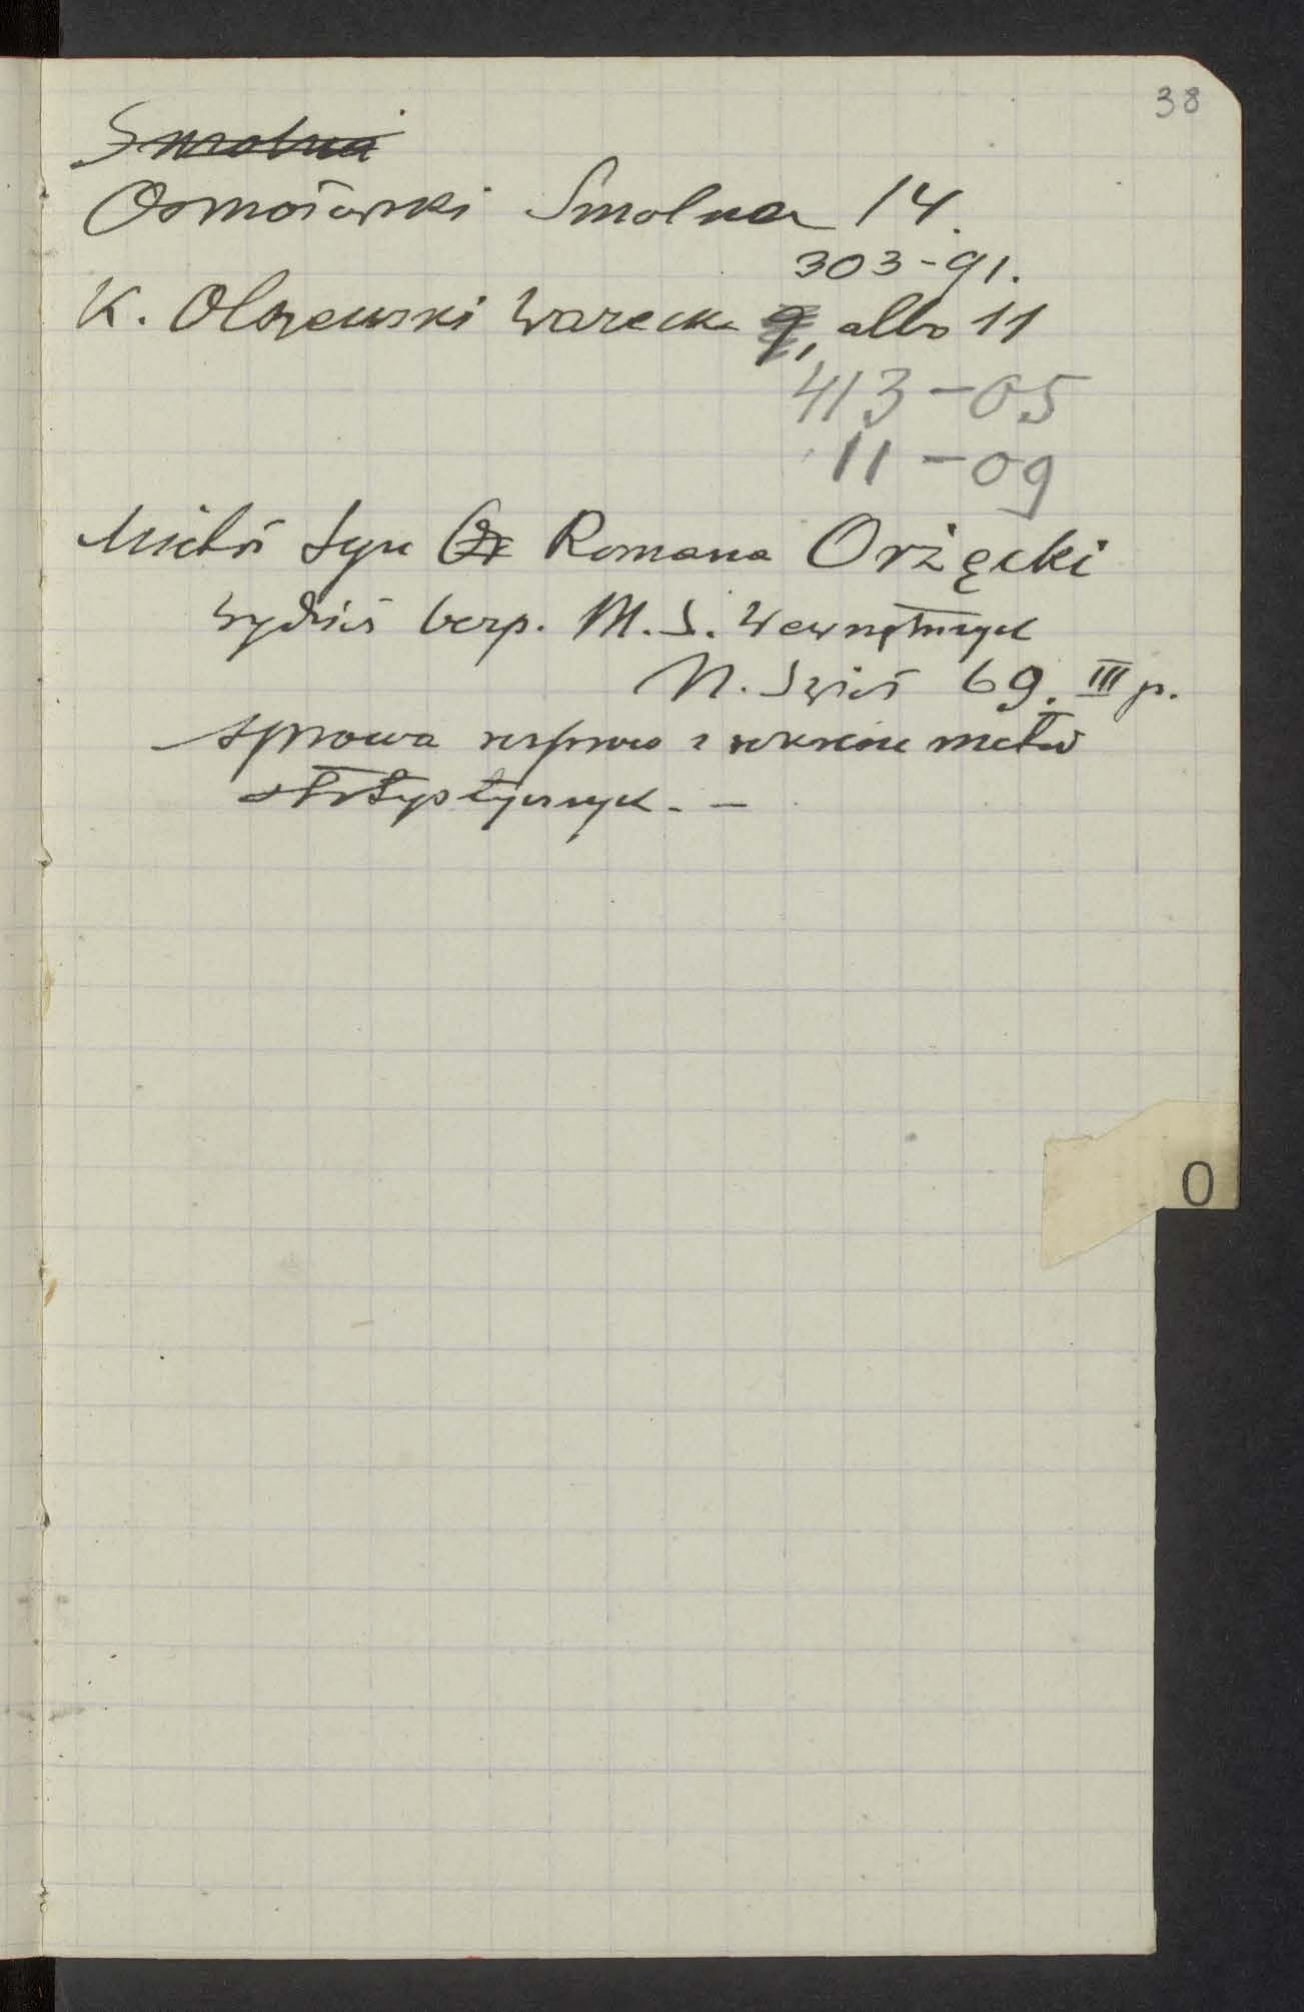 38
Smolna
Osmołowski Smolna 14.
303-91.
K. Olszewski Warecka 9, albo 11
413-05
11-09
Michał Syn Or Romana Orżęcki
Wydział bezp. M. S. Wewnętrznych
N. Świat 69. III p.
sprawa metod
statystycznych. -
O